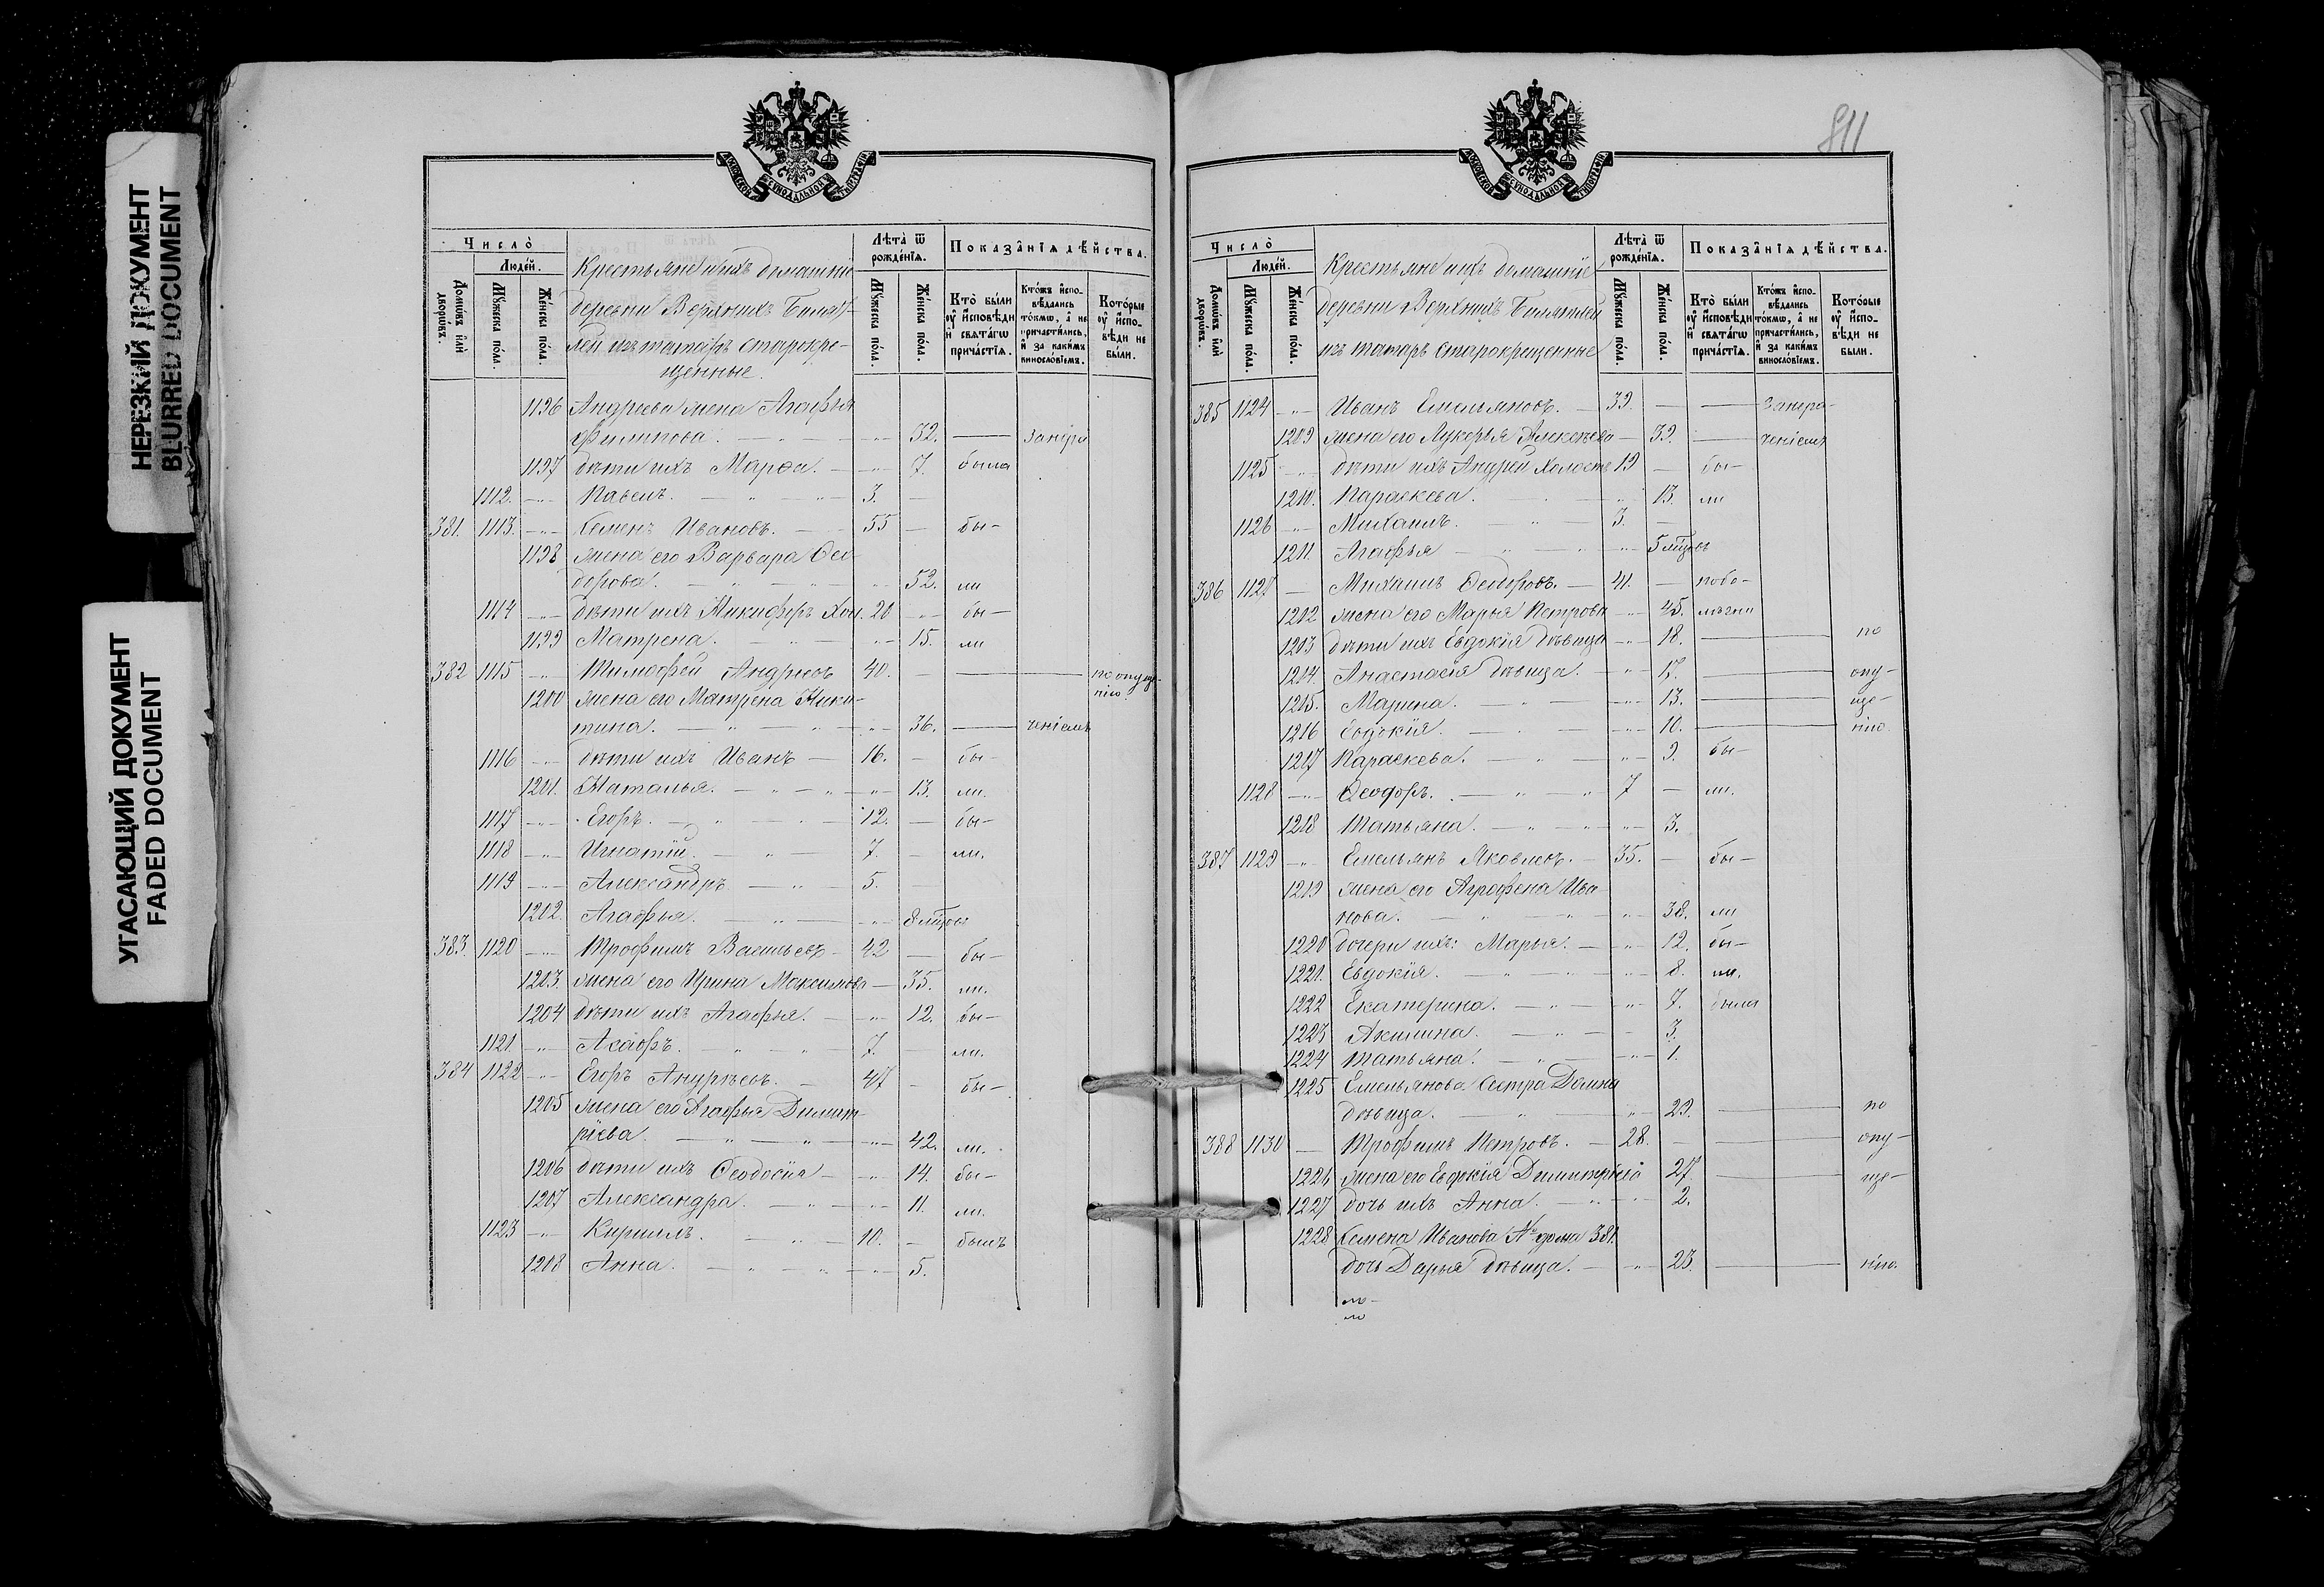 НЕРЕЗКИЙ ДОКУМЕНТ
BLURRED DOCUMENT
УГАСАЮЩИЙ ДОКУМЕНТ
FADED DOCUMENT
МОСКОВСКОЙ СѴНОДАЛЬНОЙ ТИПОГРАФІИ
Число̀
Людéй.
Домѡ́въ и҆лѝ дворѡ́въ.
Мꙋ́жеска по́ла.
Же́нска по́ла.
Крестьяне и ихъ домашніе
деревни Верхнихъ Билят-
лей изъ татаръ старокре-
щенные.
Лѣта̀ ѿ рожде́нїѧ.
Мꙋ́жеска по́ла.
Же́нска по́ла.
Показа̑нїѧ дѣ́йства.
Кто̀ бы́ли ᲂу҆ и҆сповѣ́ди и҆ свѧта́гѡ прича́стїѧ.
Кто́жъ и҆спо-вѣ́дались то́кмѡ, а҆ не причасти́лись, и҆ за каки́мъ винословїемъ.
Кото́рые ᲂу҆ и҆спо-вѣ́ди не бы́ли.
1196 Андреева жена Агафья
Филипова. 32. запра
1197 дѣти ихъ Марѳа. 7. была
1112. Павелъ. 3.
381. 1113. Семенъ Ивановъ. 55 бы-
1198 жена его Варвара Ѳео-
дорова. 52. ли
1114 дѣти ихъ Никифоръ Хол. 20 бы-
1199 Матрена. 15. ли
382 1115 Тимоѳей Андреевъ 40. по опуще-
нію
1200 жена его Матрена Ники-
тина. 36. ченіемъ
1116 дѣти ихъ Иванъ 16. бы-
1201. Наталья. 13. ли.
1117 Егоръ. 12. бы-
1118 Игнатій. 7. ли.
1119 Александръ 5.
1202. Агафья. 8 мцовъ
383. 1120 Трофимъ Васильевъ 42 бы-
1203. жена его Ирина Максимова 35. ли.
1204 дѣти ихъ Агафья. 12. бы-
1121 Асафъ. 7. ли.
384 1122 Егоръ Андреевъ. 47 бы-
1205 жена его Агафья Димит-
ріева. 42. ли.
1206 дѣти ихъ Ѳеодосія 14. бы-
1207 Александра. 11. ли.
1123 Кириллъ. 10. былъ
1208 Анна. 5.
811
МОСКОВСКОЙ СѴНОДАЛЬНОЙ ТИПОГРАФІИ
Число̀
Людéй.
Домѡ́въ и҆лѝ дворѡ́въ.
Мꙋ́жеска по́ла.
Же́нска по́ла.
Крестьяне ихъ домашніе
деревни Верхнихъ Билятлей
изъ татаръ старокрещенные
Лѣта̀ ѿ рожде́нїѧ.
Мꙋ́жеска по́ла.
Же́нска по́ла.
Показа̑нїѧ дѣ́йства.
Кто̀ бы́ли ᲂу҆ и҆сповѣ́ди и҆ свѧта́гѡ прича́стїѧ.
Кто́жъ и҆спо-вѣ́дались то́кмѡ, а҆ не причасти́лись, и҆ за каки́мъ винословїемъ.
Кото́рые ᲂу҆ и҆спо-вѣ́ди не бы́ли.
385 1124 Иванъ Емельяновъ. 39. запра-
1209 жена его Лукерья Алексѣева 39. ченіемъ
1125 дѣти ихъ Андрей холостъ 19 бы-
1210. Параскева. 13. ли
1126 Михаилъ. 3.
1211. Агафья 5 мцовъ
386 1127 Михаилъ Ѳеодоровъ. 41. по бо-
1212 жена его Марья Петрова 45. лѣзни
1213 дѣти ихъ Евдокія дѣвица 18. по
1214. Анастасія дѣвица. 17. опу-
1215. Марина. 13. ще-
1216 Евдокія. 10. нію.
1217 Параскева. 9. бы-
1128 Ѳеодоръ. 7 ли.
1218 Татьяна. 3.
387 1129 Емельянъ Яковлевъ. 35. бы-
1219 жена его Аграфена Ива
нова. 38. ли
1220 дочери ихъ: Марья. 12. бы-
1221. Евдокія. 8. ли.
1222 Екатерина. 7. была
1223 Акилина. 3.
1224 Татьяна. 1.
1225 Емельянова сестра Домна
дѣвица. 29. по
388 1130 Трофимъ Петровъ. 28. опу-
1226 жена его Евдокія Димитріева 27. ще-
1227 дочь ихъ Анна. 2.
1228 Семена Иванова № дома 381.
дочь Дарья дѣвица. 23. нію.